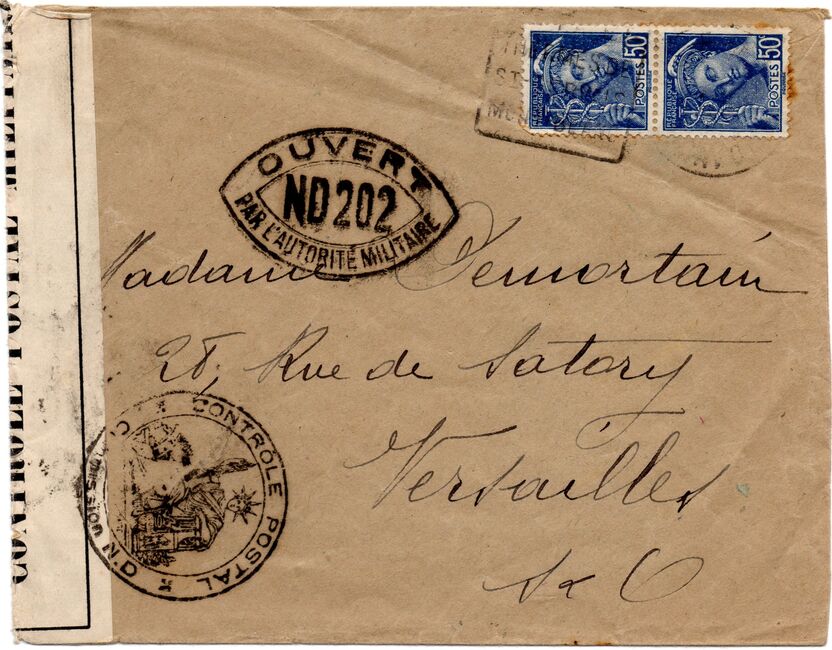 CONTRÔLE POSTAL MILITAIRE
RÉPUBLIQUE FRANÇAISE
50c
POSTES
RÉPUBLIQUE FRANÇAISE
50c
POSTES
OUVERT
ND 202
PAR L'AUTORITÉ MILITAIRE
Madame Demortain
28, Rue de Satory
Versailles
S & O
CONTRÔLE POSTAL